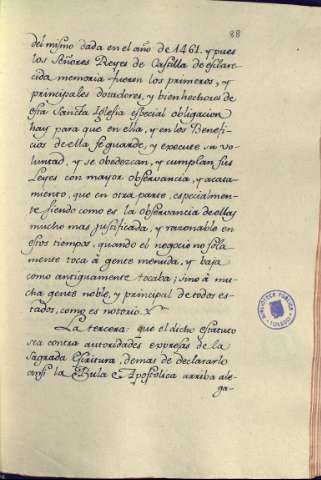 88
del mismo dada en el año de 1461. y pues
los Señores Reyes de Castilla de esclare-
cida memoria fueron los primeros, y
principales dotadores, y bienhechores de
esta Sancta Iglesia especial obligacion
hay para que en ella, y en los Benefi-
cios de ella se guarde, y execute su vo-
luntad, y se obedezcan, y cumplan sus
Leyes con mayor observancia, y acata-
miento, que en otra parte, especialmen-
te siendo como es la observancia de ellas
mucho mas justificada, y razonable en
estos tiempos, quando el negocio no sola-
mente toca à gente menuda, y baja
como antiguamente tocaba; sino à mu-
cha gente noble, y principal de todos es-
tados, como es notorio.
La tercera: que el dicho estatuto
sea contra autoridades expresas de la
Sagrada Escritura, demas de declararlo
ansi la Bula Apostolica arriba ale-
ga-
BIBLIOTECA PUBLICA
TOLEDO